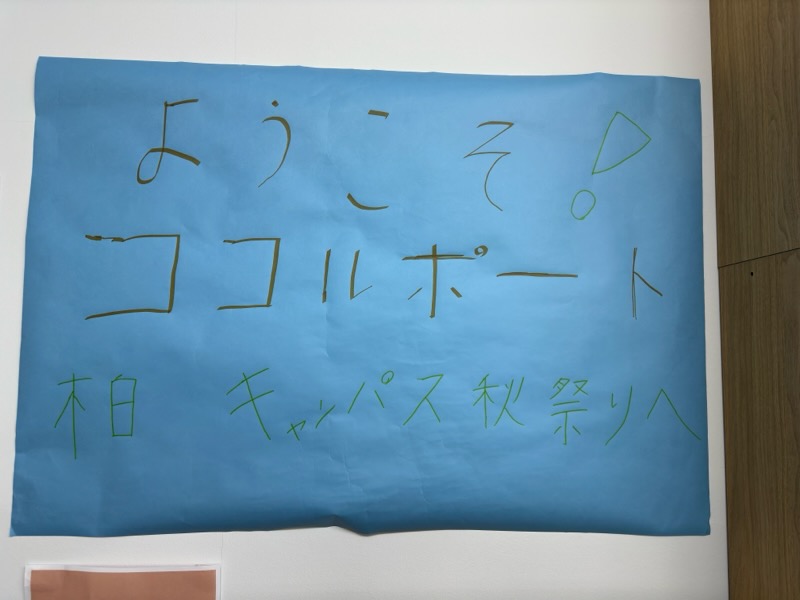 ようこそ!
ココルポート
柏 キャンパス秋祭りへ